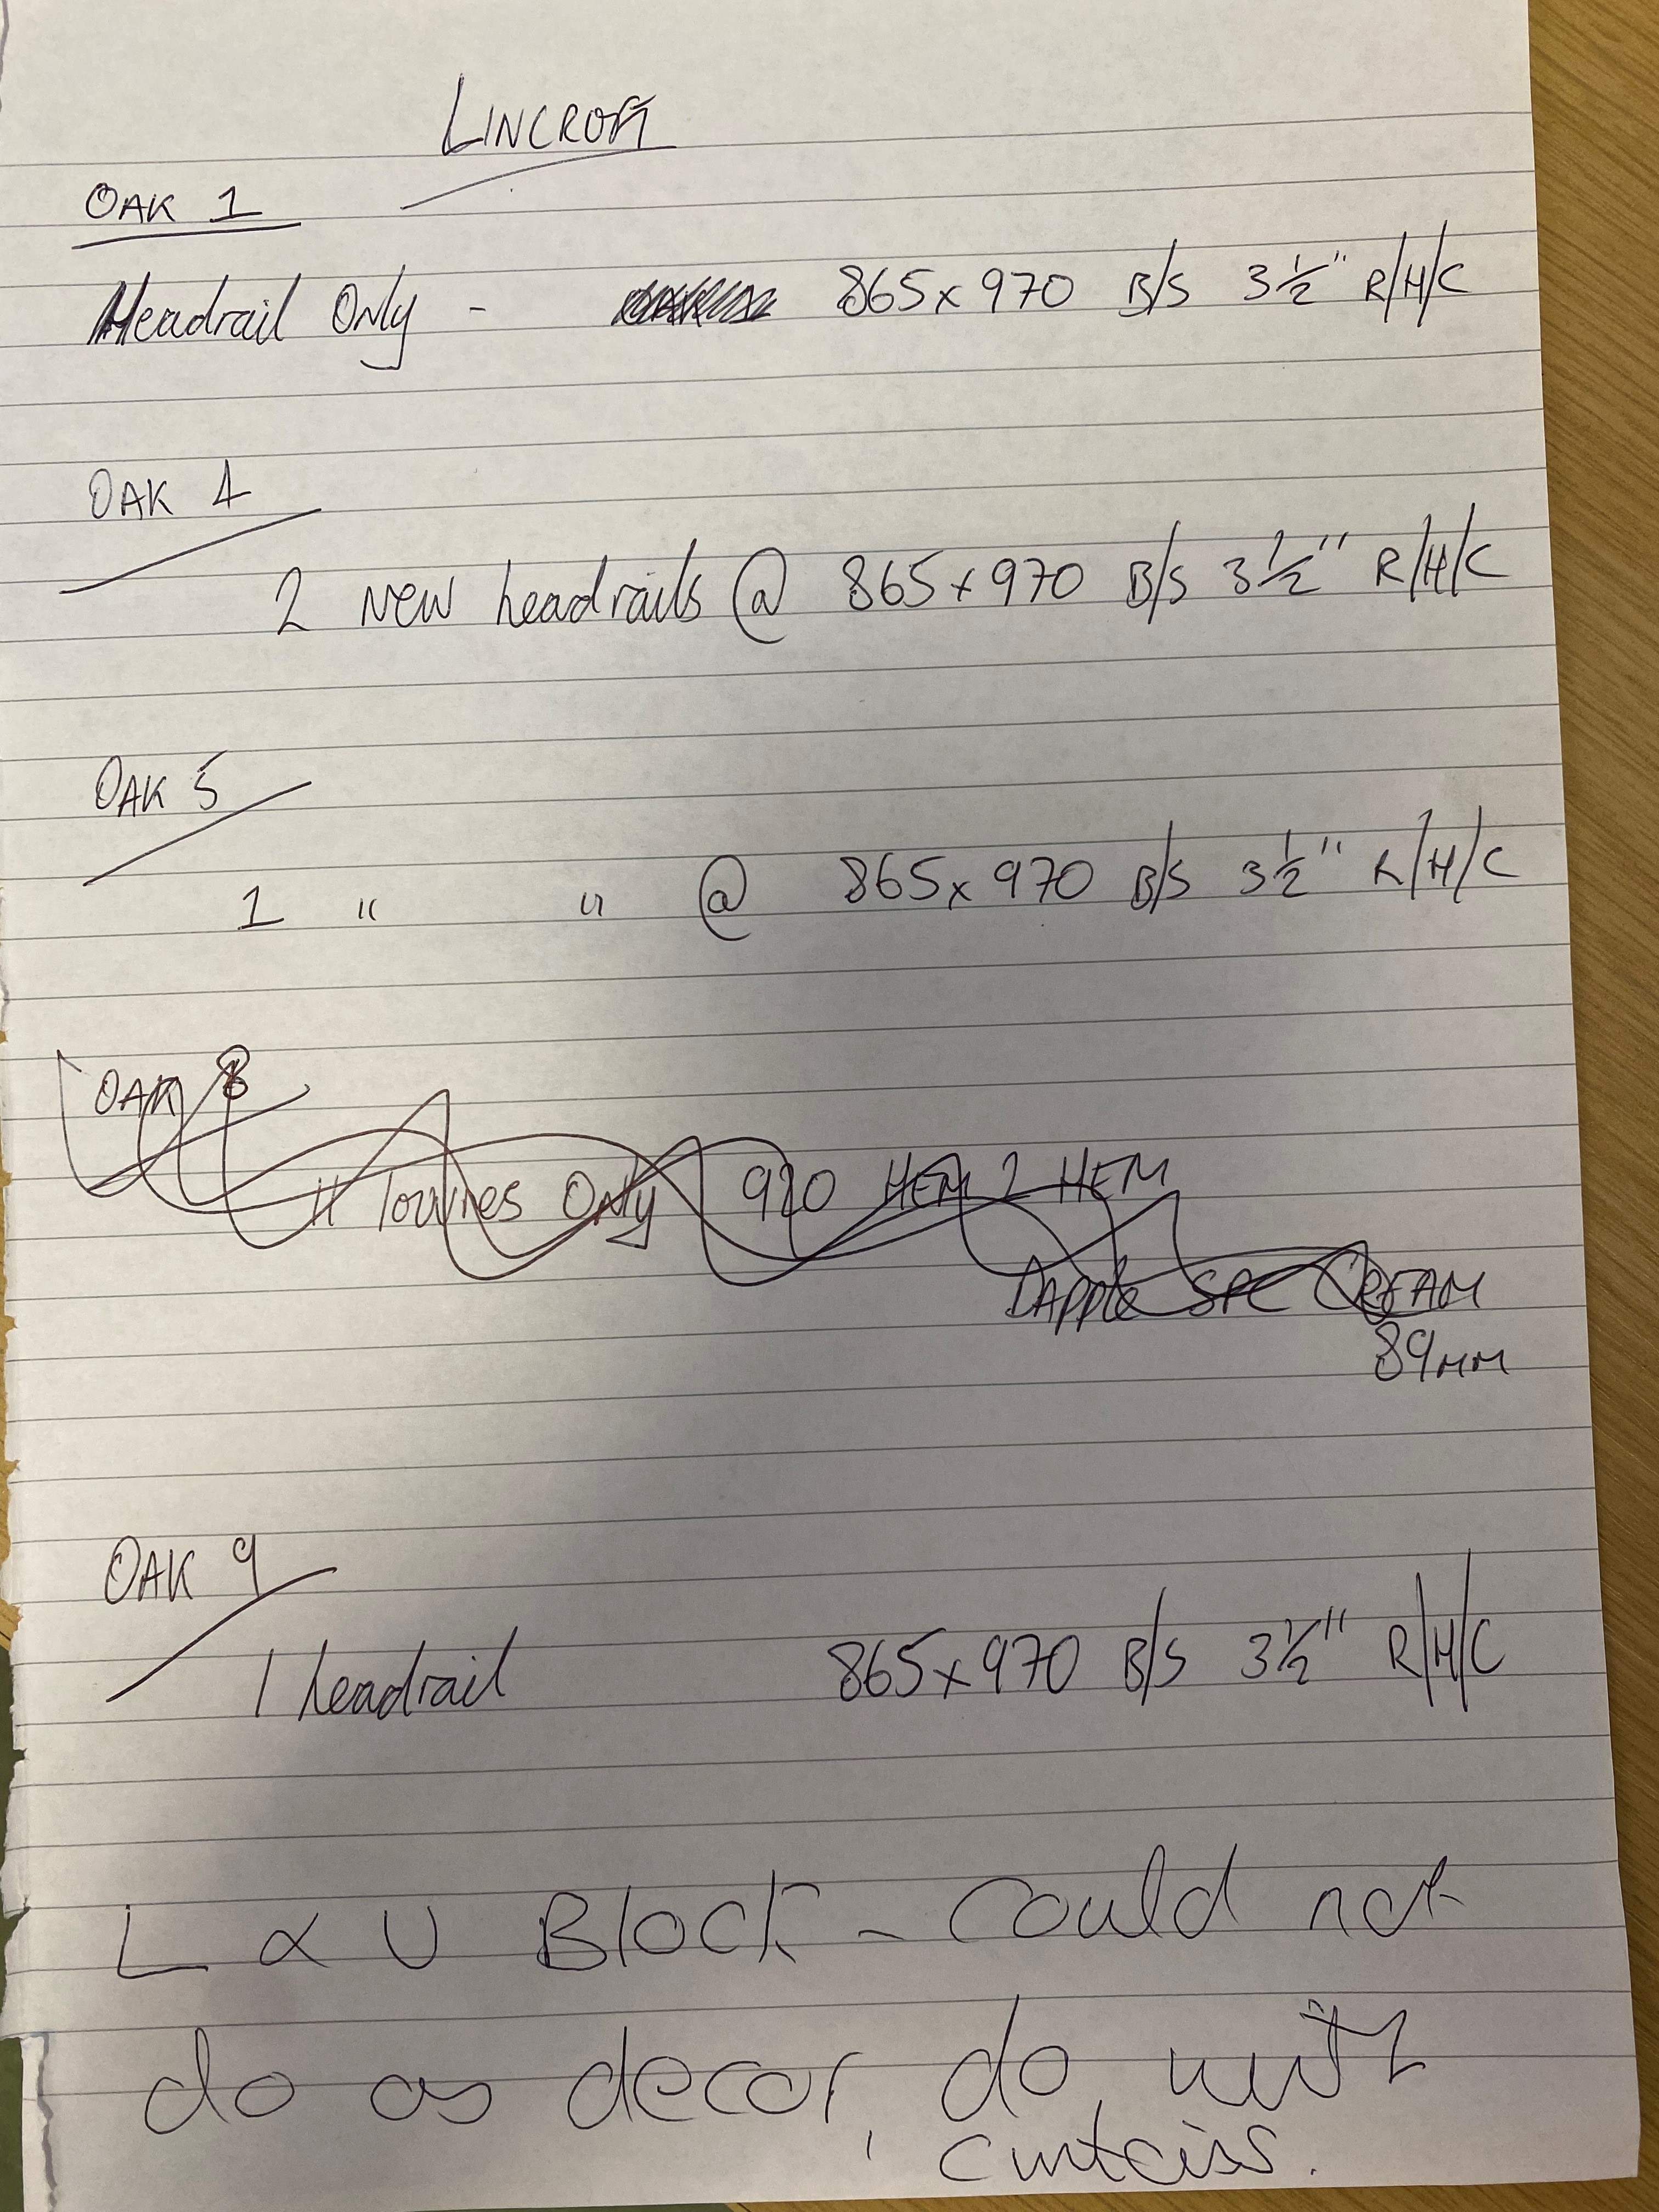 LINCROFT
OAK 1
Headrail Only - 865x970 B/S 3½" R/H/C
OAK 4
2 NEW headrails @ 865x970 B/S 3½" R/H/C
OAK 5
1 " " @ 865x970 B/S 3½" R/H/C
OAK 8
11 louvres Only 920 HEM 2 HEM
Dapple SPC CREAM
89MM
OAK 9
1 headrail 865x970 B/S 3½" R/H/C
L & U Block - Could not
do as decor, do with
curtains.